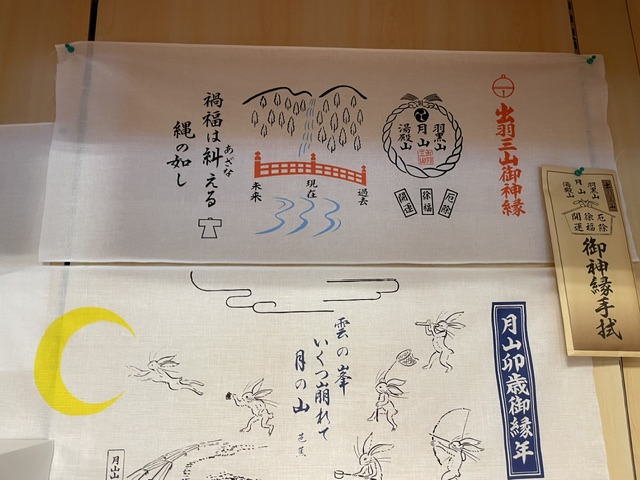 出羽三山御神縁
羽黒山
月山
湯殿山
厄除
徐福
開運
過去
現在
未来
禍福は糾える
あざな
縄の如し
月山卯歳御縁年
雲の峯
いくつ崩れて
月の山
芭蕉
月山
羽黒山
月山
湯殿山
厄除
徐福
開運
御神縁手拭